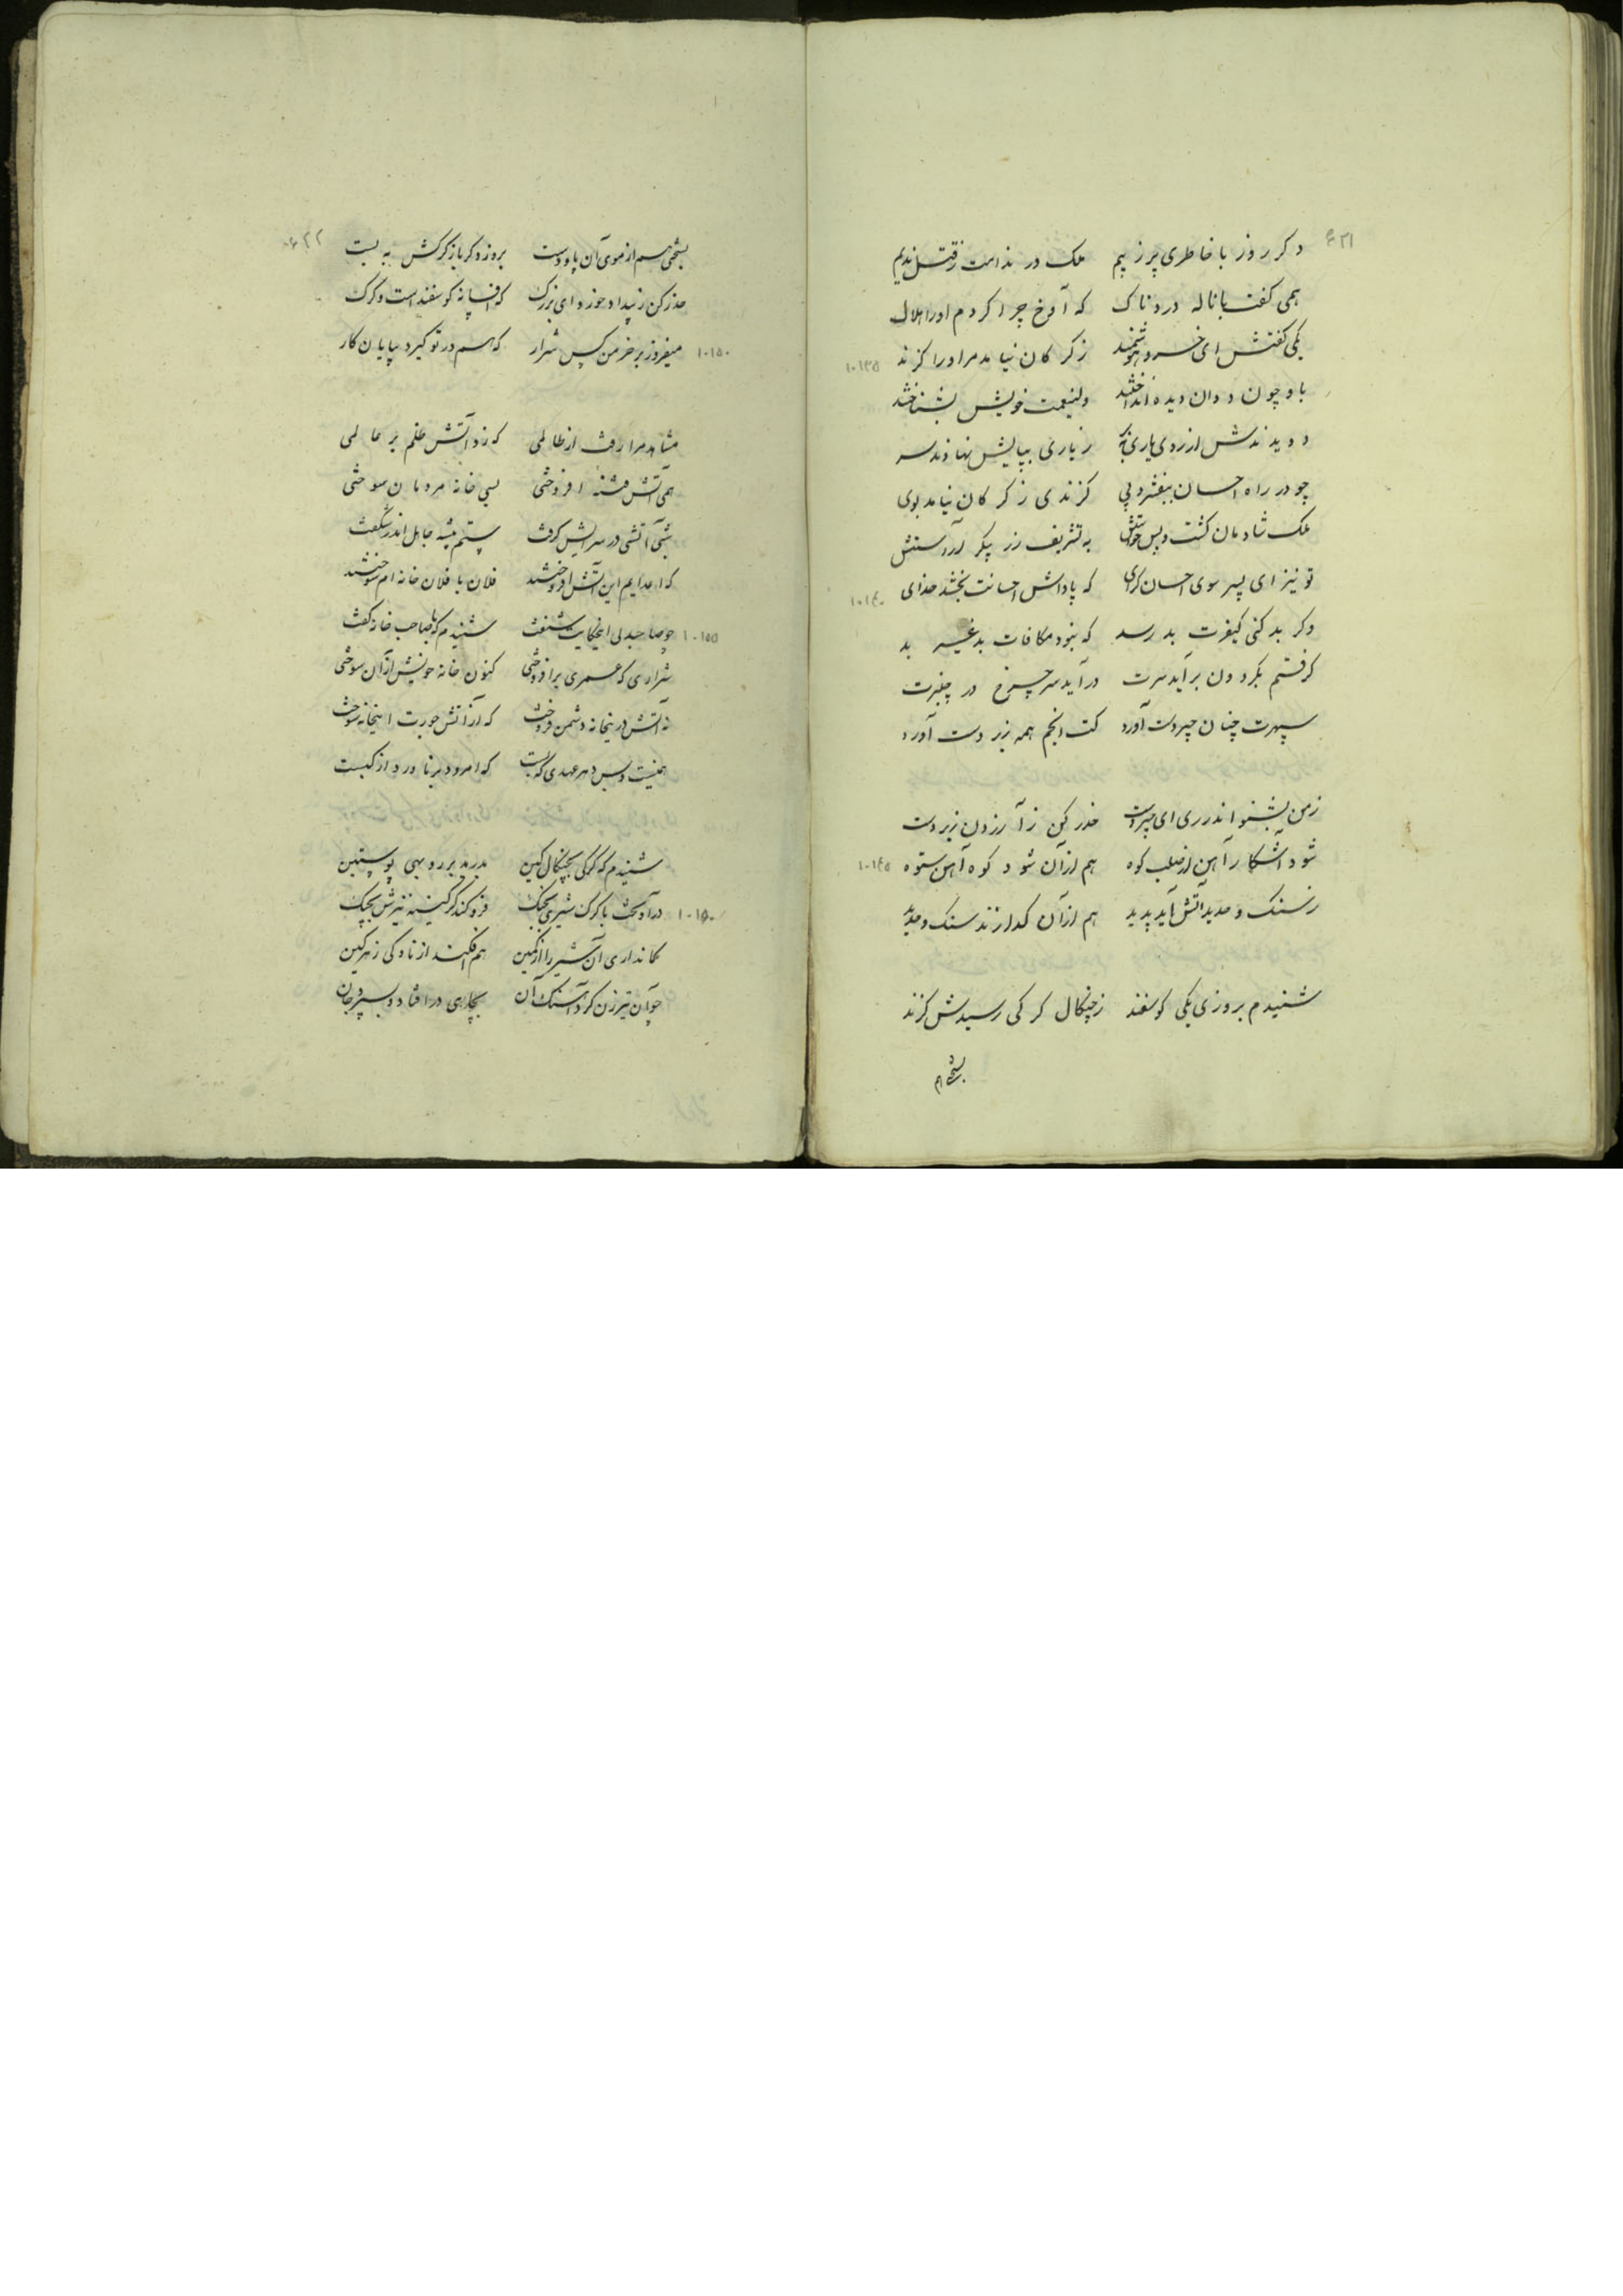 ۶۲۱
دکر روز با خاطری پر ز بیم ملک در ندامت ز قتل ندیم
همی کفت با ناله دردناک که آوخ چرا کردم او را هلاک
یکی کفتش ای خسرو هوشمند ز کرکان نیامد مر او را کزند
۱۰۱۳۵
باو چون ددان دیده انداختند ولینعمت خویش بشناختند
دویدندش از روی یاری ببر ز یاری بپایش نهادند سر
چو در راه احسان بیفشرد پی کزندی ز کرکان نیامد بوی
ملک شادمان کشت و پس خواستش به تشریف زر پیکر آراستش
تو نیز ای پسر سوی احسان کرای که پاداش احسانت بخشد خدای
۱۰۱٤۰
وکر بد کنی کیفرت بد رسد که نبود مکافات بد غیر بد
کرفتم بکردون برآید سرت درآید سر چرخ در چنبرت
سپهرت چنان چیردست آورد کت انجم همه زیر دست آورد
ز من بشنو اندرزی ای چیردست حذر کن ز آزردن زیردست
شود آشکار آهن از صلب کوه هم از آن شود کوه آهن ستوه
۱۰۱٤۵
ز سنک و حدید آتش آید پدید هم از آن کدازند سنک و حدید
شنیدم بروزی یکی کوسفند ز چنکال کرکی رسیدش کزند
بشخم
۶۲۲
بشخمی هم از موی آن پا و دست بروز دکر باز کرکش به بست
حذر کن ز بیداد خوزد ای بزرک که افسانه کوسفند است و کرک
میفروز بر خرمن کس شرار که هم در تو کیرد بپایان کار
۱۰۱۵۰
مشاهد مرا رفت از ظالمی که زد آتش ظلم بر عالمی
همی آتش فتنه افروختی بسی خانه مردمان سوختی
شبی آتشی در سرایش کرفت ستم پیشه جاهل اندر شکفت
که اعدایم این آتش افروختند فلان با فلان خانه ام سوختند
چو صاحبدلی این حکایت شنفت شنیدم که با صاحب خانه کفت
۱۰۱۵۵
شراری که عمری برافروختی کنون خانه خویش از آن سوختی
نه آتش در اینخانه دشمن فروخت که از آتش جورت اینخانه سوخت
همینست و بس در هر عهدی که بست که امرود برناورد از کبست
شنیدم که کرکی بچنکال کین بدرید بر روبهی پوستین
درآویخت با کرک شیری بجنک فرو کند کرکینه تیزش بچنک
۱۰۱۶۰
کمانداری آن شیر را از کمین هم افکند از ناوکی زهرکین
چو آن تیرزن کرد آهنک آن بچاهی در افتاد و بسپرد جان